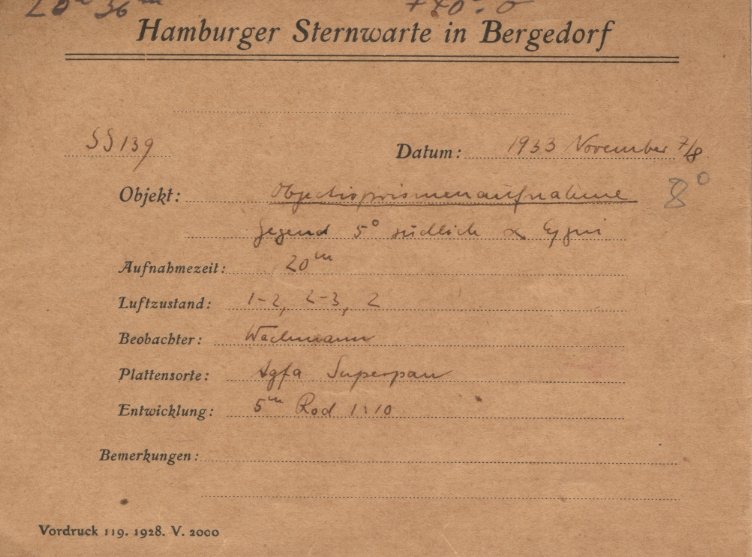 20h 36m +40°.0
Hamburger Sternwarte in Bergedorf
SS 139 Datum: 1933 November 7/8
Objekt: Objectivprismenaufnahme 8°
Gegend 5° südlich α Cygni
Aufnahmezeit: 20m
Luftzustand: 1-2, 2-3, 2
Beobachter: Wachmann
Plattensorte: Agfa Superpan
Entwicklung: 5m Rod 1:10
Bemerkungen:
Vordruck 119. 1928. V. 2000